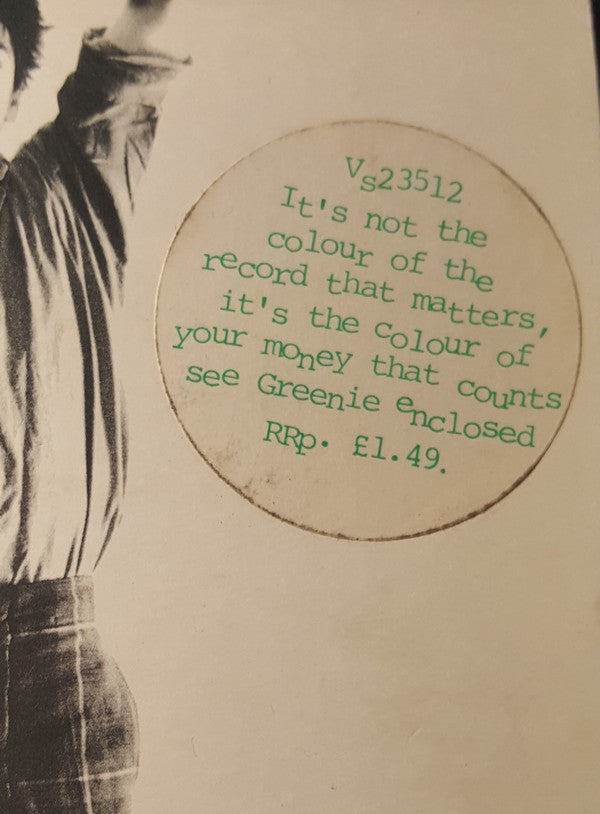 Vs23512
It's not the
colour of the
record that matters,
it's the colour of
your money that counts
see Greenie enclosed
RRp. £1.49.